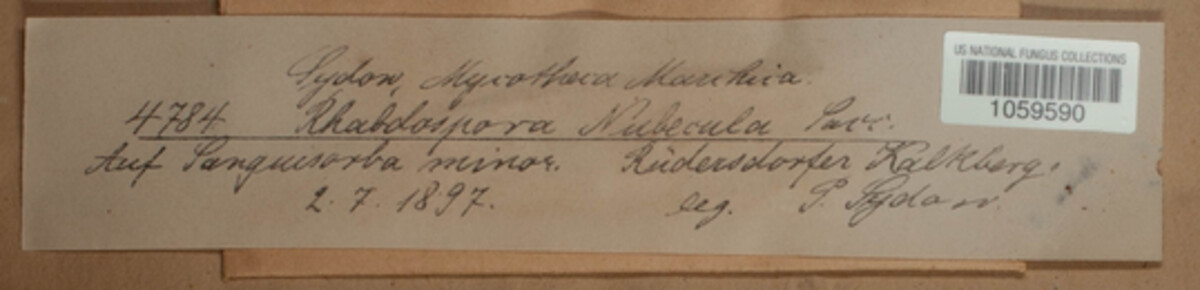 Sydow, Mycotheca Marchica.
4784 Rhabdospora Nubecula Sacc.
Auf Sanguisorba minor. Rüdersdorfer Kalkberg.
2. 7. 1897. leg. P. Sydow.
US NATIONAL FUNGUS COLLECTIONS
1059590